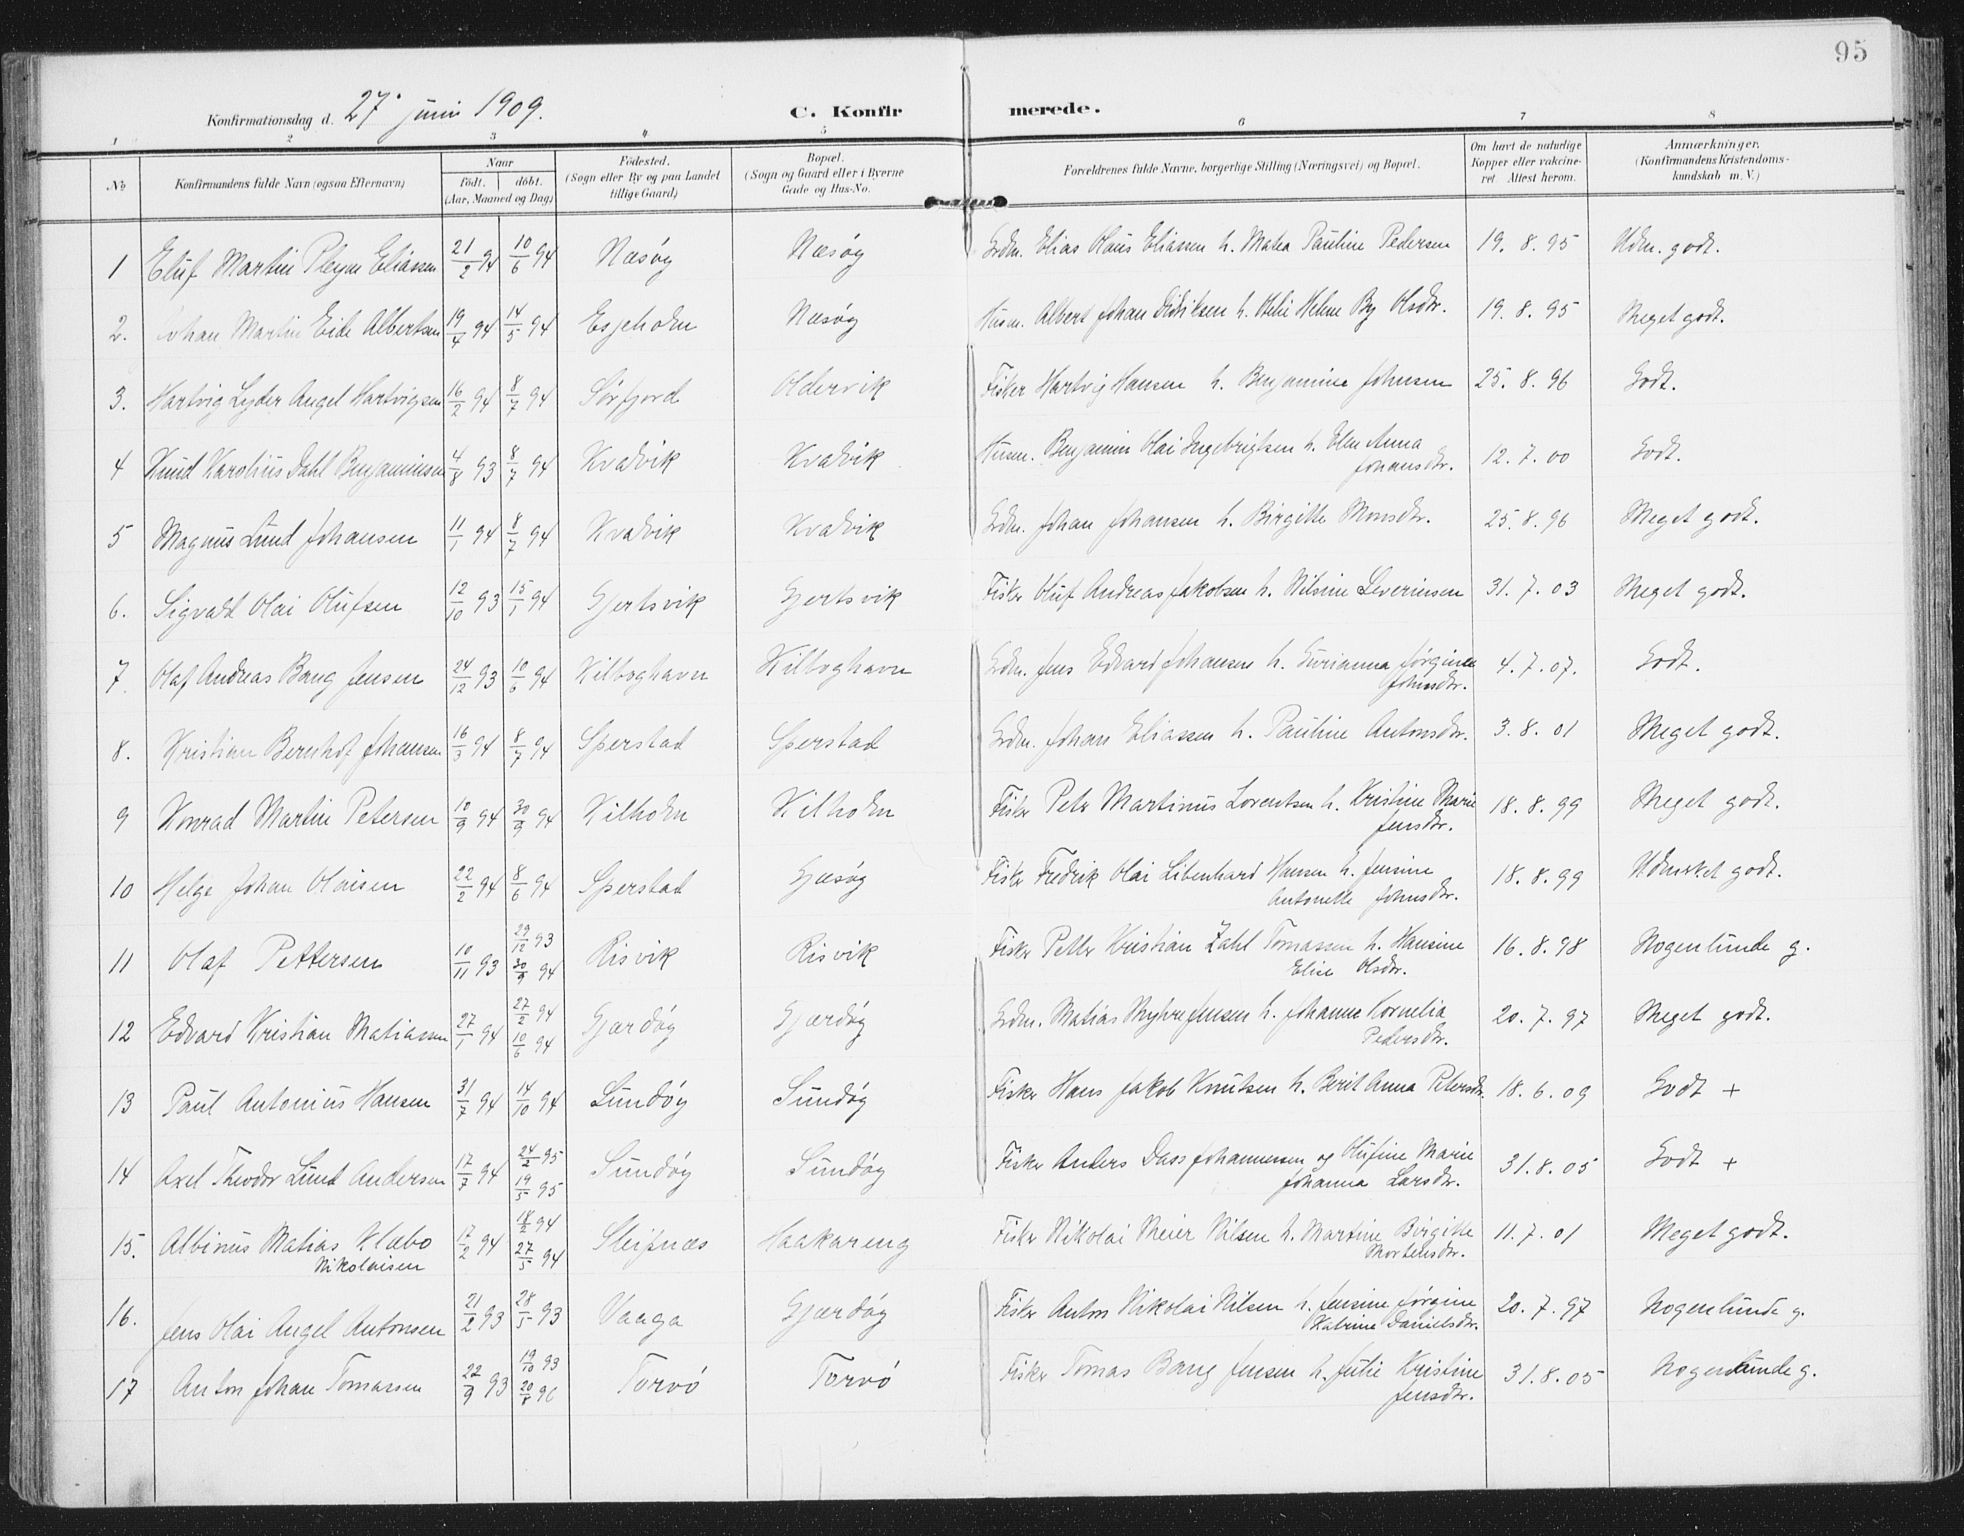 95
Konfirmationsdag d. 27. juni 1909.
C. Konfir merede.
1 2 3 4 5 6 7 8
№ Konfirmandens fulde Navn (ogsaa Efternavn) Naar födt. döbt. (Aar, Maaned og Dag) Födested. (Sogn eller By og paa Landet tillige Gaard) Bopæl. (Sogn og Gaard eller i Byerne Gade og Hus-No. Forældrenes fulde Navne, borgerlige Stilling (Næringsvei) og Bopæl. Om havt de naturlige Kopper eller vakcineret. Attest herom. Anmærkninger. (Konfirmandens Kristendomskundskab m. V.)
1 Eluf Martin Pleym Eliassen 21/2 94 10/6 94 Næsöy Næsöy Grdm. Elias Olaus Eliassen h. Matea Pauline Pedersen 19. 8. 95 Udm. godt.
2. Johan Martin Eide Albertsen 19/4 94 14/5 94 Esjeholm Næsöy Husm. Albert Johan Didriksen h. Helene By Olsdtr. 19. 8. 95 Meget godt.
3. Hartvig Lyder Angel Hartvigsen 16/2 94 8/7 94 Sörfjord Oldervik Fisker Hartvig Hansen h. Benjamine Johnsen 25. 8. 96 Godt.
4 Knud Karolius Dahl Benjaminsen 4/8 93 8/7 94 Kvalvik Kvalvik Husm. Benjamin Olai Ingebrigtsen h. Elen Anna Johansdtr. 12. 7. 00 Godt.
5 Magnus Lund Johansen 11/1 94 8/7 94 Kvalvik Kvalvik Grdm. Johan Johansen h. Birgitte Monsdtr. 25. 8. 96 Meget godt.
6. Sigvald Olai Olufsen 12/10 93 15/1 94 Gjertsvik Gjertsvik Fisker Oluf Andreas Jakobsen h. Nilsine Severinsen 31. 7. 03 Meget godt.
7. Olaf Andreas Bang Jensen 24/12 93 10/6 94 Kilboghavn Kilboghavn Grdm. Jens Edvard Johansen h. Gurianna Jörgine Johnsdtr. 4. 7. 07. Godt.
8. Kristian Bernhof Johansen 16/3 94 8/7 94 Sperstad Sperstad Grdm. Johan Eliassen h. Pauline Antonsdtr. 3. 8. 01 Meget godt.
9 Konrad Martin Petersen 10/9 94 30/9 94 Kilholm Kilholm Fisker Peter Martinus Lorentsen h. Kristine Marie Jensdtr. 18. 8. 99 Meget godt.
10 Helge Johan Olaisen 22/2 94 8/6 94 Sperstad Gjæsöy Fisker Fredrik Olai Libenhard Hansen h. Jensine Antonette Johnsdtr. 18. 8. 99 Udmerket godt.
11 Olaf Pettersen 10/11 93 29/12 93 30/9 94 Risvik Risvik Fisker Petter Kristian Zahl Tomassen h. Hansine Elise Olsdtr. 16. 8. 98 Nogenlunde g.
12 Edvard Kristian Matiassen 27/1 94 27/2 94 10/6 94 Gjærdöy Gjærdöy Grdm. Matias Myhre Jensen h. Johanne Kornelia Pedersdtr. 20. 7. 97 Meget godt.
13 Paul Antonius Hansen 31/7 94 14/10 94 Sundöy Sundöy Fisker Hans Jakob Knutsen h. Berit Anna Petersdtr. 18. 6. 09 Godt +
14 Axel Theodor Lund Andersen 17/7 94 24/2 95 19/5 95 Sundöy Sundöy Fisker Anders Dass Johannessen og Olufine Marie Johanna Larsdtr. 31. 8. 05 Godt +
15. Albinus Matias Klæbo Nikolaisen 17/2 94 18/2 94 27/5 94 Sleipnæs Haakareng Fisker Nikolai Meier Nilsen h. Martine Birgitte Mortensdtr. 11. 7. 01 Meget godt.
16. Jens Olai Angel Antonsen 21/2 93 28/5 93 Vaaga Gjærdöy Fisker Anton Nikolai Nilsen h. Jensine Jörgine Katrine Danielsdtr. 20. 7. 97 Nogenlunde g.
17 Anton Johan Tomassen 22/9 93 19/10 93 20/8 96 Torvö Torvö Fisker Tomas Bang Jensen h. Julie Kristine Jensdtr. 31. 8. 05 Nogenlunde g.